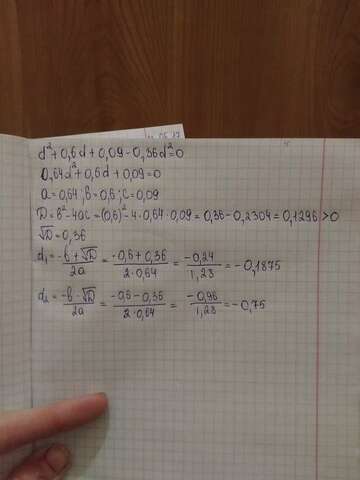 d²+0,6d+0,09-0,36d²=0
0,64d²+0,6d+0,09=0
a=0,64; b=0,6; c=0,09
D=b²-4ac=(0,6)²-4·0,64·0,09=0,36-0,2304=0,1296>0
√D=0,36
d₁=(-b+√D)/2a=(-0,6+0,36)/(2·0,64)=(-0,24)/1,28=-0,1875
d₂=(-b-√D)/2a=(-0,6-0,36)/(2·0,64)=(-0,96)/1,28=-0,75